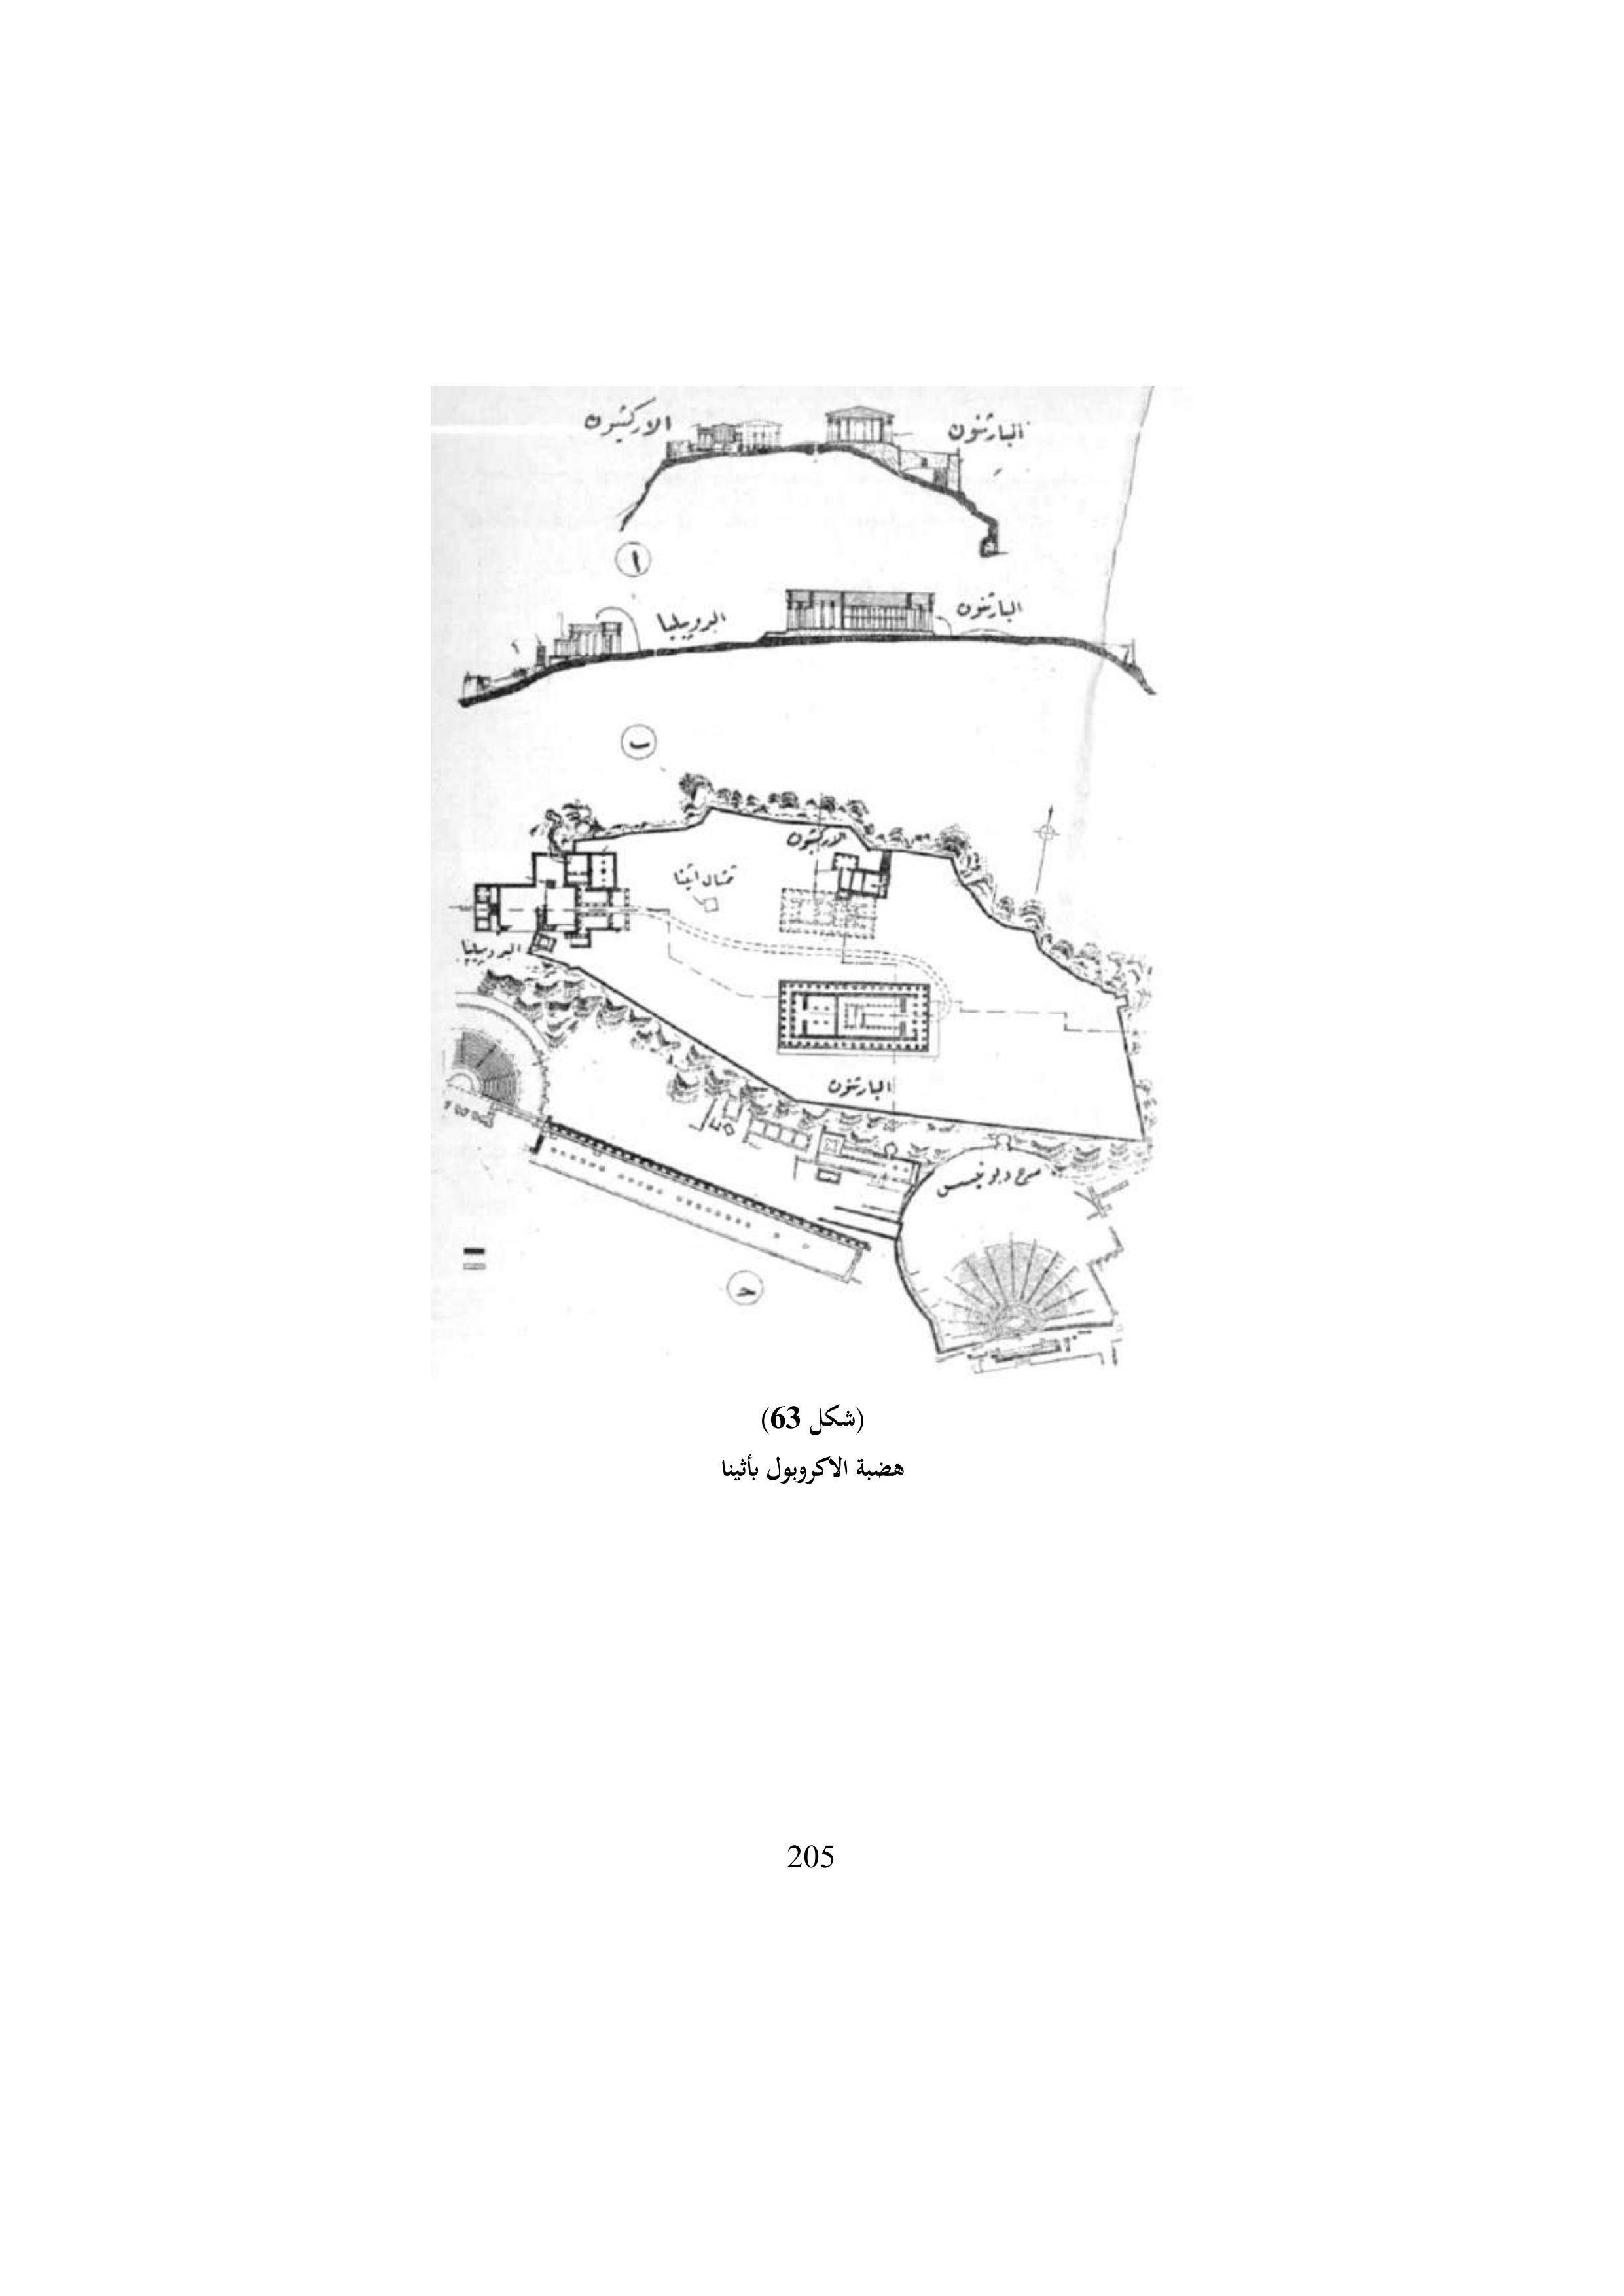 البارثنون
الاركثيون
ا
البارثنون
البروبيليا
ب
الاركثيون
تمثال اثينا
البروبيليا
البارثنون
مسرح ديونيسس
ح
(شكل 63)
هضبة الاكروبول بأثينا
205